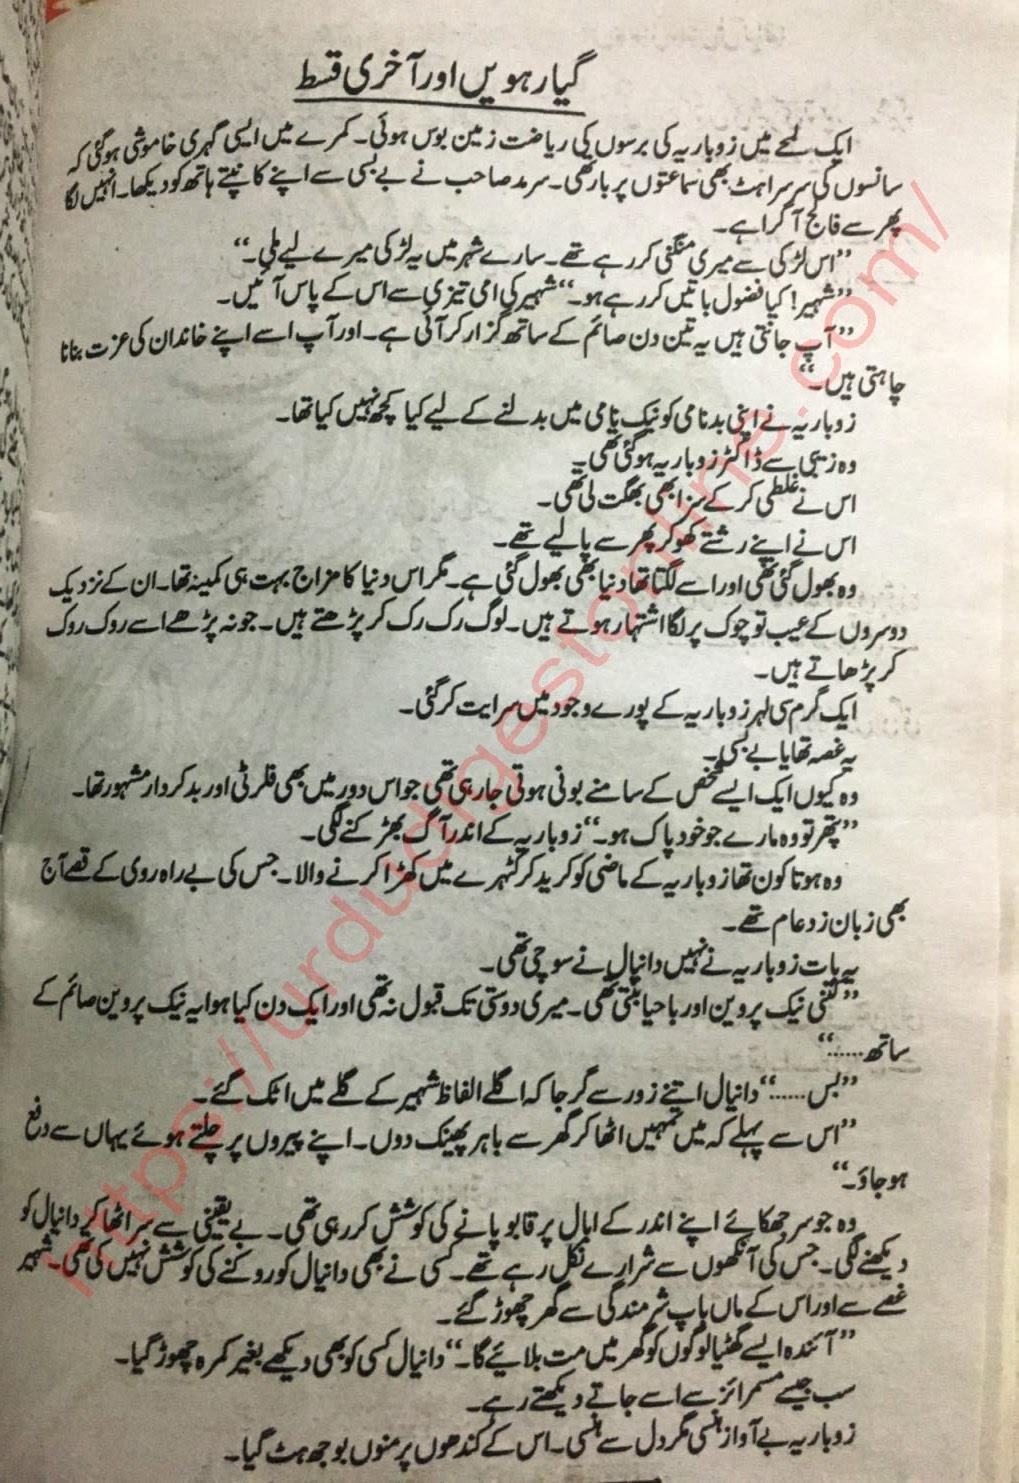 گیارہویں اور آخری قسط
ایک لمحے میں زوباریہ کی برسوں کی ریاضت زمین بوس ہوئی۔ کمرے میں ایسی گہری خاموشی ہوگئی کہ
سانسوں کی سرسراہٹ بھی سماعتوں پر بار تھی۔ سرمد صاحب نے بے بسی سے اپنے کانپتے ہاتھ کو دیکھا۔ انہیں لگا
پھر سے فالج آ گرا ہے۔
”اس لڑکی سے میری منگنی کر رہے تھے۔ سارے شہر میں یہ لڑکی میرے لیے ملی۔“
”شہیر! کیا فضول باتیں کر رہے ہو۔“ شہیر کی امی تیزی سے اس کے پاس آئیں۔
”آپ جانتی ہیں یہ تین دن صائم کے ساتھ گزار کر آئی ہے۔ اور آپ اسے اپنے خاندان کی عزت بنانا
چاہتی ہیں۔“
زوباریہ نے اپنی بدنامی کو نیک نامی میں بدلنے کے لیے کیا کچھ نہیں کیا تھا۔
وہ زیبی سے ڈاکٹر زوباریہ ہوگئی تھی۔
اس نے غلطی کر کے سزا بھی بھگت لی تھی۔
اس نے اپنے رشتے کھو کر پھر سے پا لیے تھے۔
وہ بھول گئی تھی اور اسے لگتا تھا دنیا بھی بھول گئی ہے۔ مگر اس دنیا کا مزاج بہت ہی کمینہ تھا۔ ان کے نزدیک
دوسروں کے عیب تو چوک پر لگا اشتہار ہوتے ہیں۔ لوگ رک رک کر پڑھتے ہیں۔ جو نہ پڑھے اسے روک روک
کر پڑھاتے ہیں۔
ایک گرم سی لہر زوباریہ کے پورے وجود میں سرایت کر گئی۔
یہ غصہ تھا یا بے بسی۔
وہ کیوں ایک ایسے شخص کے سامنے بونی ہوتی جا رہی تھی جو اس دور میں بھی فلرٹی اور بدکردار مشہور تھا۔
”پتھر تو وہ مارے جو خود پاک ہو۔“ زوباریہ کے اندر آگ بھڑکنے لگی۔
وہ ہوتا کون تھا زوباریہ کے ماضی کو کرید کر کٹہرے میں کھڑا کرنے والا۔ جس کی بے راہ روی کے قصے آج
بھی زبان زد عام تھے۔
یہ بات زوباریہ نے نہیں دانیال نے سوچی تھی۔
”کتنی نیک پروین اور باحیا بنتی تھی۔ میری دوستی تک قبول نہ تھی اور ایک دن کیا ہوا یہ نیک پروین صائم کے
ساتھ......“
”بس......“ دانیال اتنے زور سے گرجا کہ اگلے الفاظ شہیر کے گلے میں اٹک گئے۔
”اس سے پہلے کہ میں تمہیں اٹھا کر گھر سے باہر پھینک دوں۔ اپنے پیروں پر چلتے ہوئے یہاں سے دفع
ہو جاؤ۔“
وہ جو سر جھکائے اپنے اندر کے ابال پر قابو پانے کی کوشش کر رہی تھی۔ بے یقینی سے سر اٹھا کر دانیال کو
دیکھنے لگی۔ جس کی آنکھوں سے شرارے نکل رہے تھے۔ کسی نے بھی دانیال کو روکنے کی کوشش نہیں کی تھی۔ شہیر
غصے سے اور اس کے ماں باپ شرمندگی سے گھر چھوڑ گئے۔
”آئندہ ایسے گھٹیا لوگوں کو گھر میں مت بلائیے گا۔“ دانیال کسی کو بھی دیکھے بغیر کمرہ چھوڑ گیا۔
سب جیسے مسمرائز سے اسے جاتے دیکھتے رہے۔
زوباریہ بے آواز ہنسی مگر دل سے ہنسی۔ اس کے کندھوں پر منوں بوجھ ہٹ گیا۔
https://urdudigestonline.com/